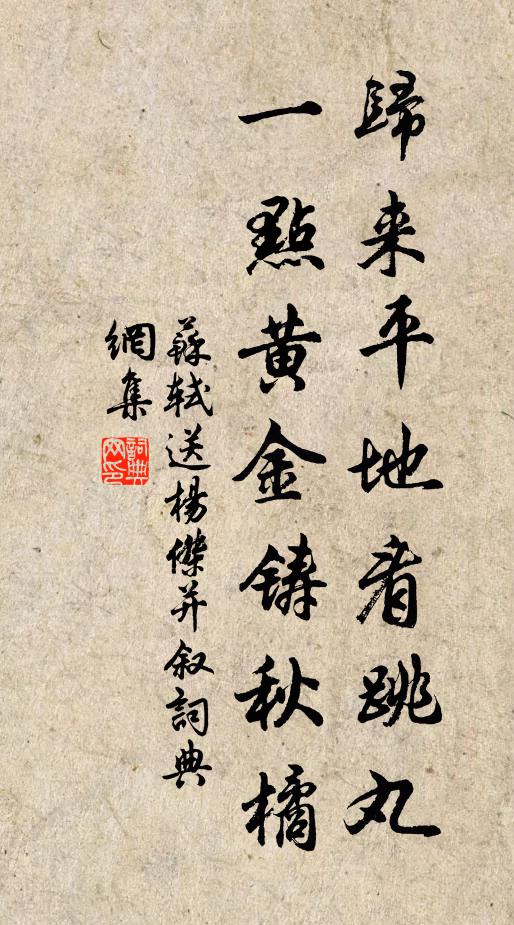 歸来平地看跳丸
一點黄金鑄秋橘
蘇軾送楊傑并叙詞典
網集
詞典网印